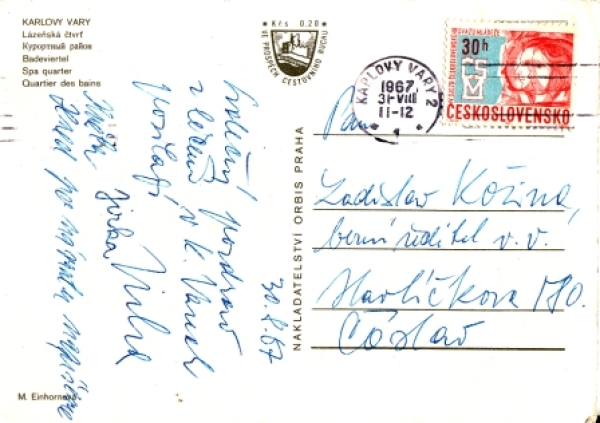 KARLOVY VARY
Lázeňská čtvrť
Курортный район
Badeviertel
Spa quarter
Quartier des bains
Kčs 0.20
VE PROSPĚCH CESTOVNÍHO RUCHU
KARLOVY VARY 2
1967
31-VIII
11-12
30h
ČSM
ČESKOSLOVENSKO
Srdečný pozdrav
z léčení v K. Varech
posílají
Jirka
Hned po návratu
30.8.67
NAKLADATELSTVÍ ORBIS PRAHA
Pan
Ladislav Kožina,
berní ředitel v.v.
Havlíčkova 170.
Čáslav
M. Einhornová